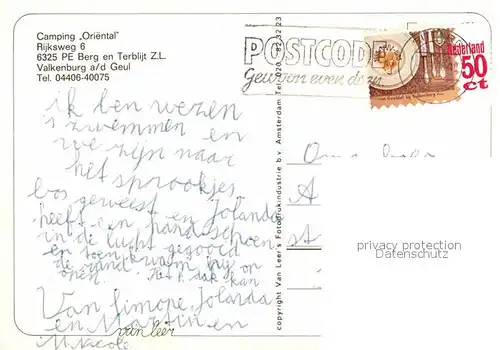 Camping „Oriëntal”
Rijksweg 6
6325 PE Berg en Terblijt Z.L.
Valkenburg a/d Geul
Tel. 04406-40075
POSTCODE
Gewoon even doen
Nederland
50
ct
ik ben wezen
zwemmen en
we zijn naar
het sprookjes
bos geweest en Jolanda
heeft een handschoen
in de lucht gegooid
en toen kwam hij op
de rand
open. Het dak
Van Simone, Jolanda
en Martin en
van leer
copyright Van Leer's Fotodrukindustrie b.v. Amsterdam Tel. 020
Oma
A
st
privacy protection
Datenschutz